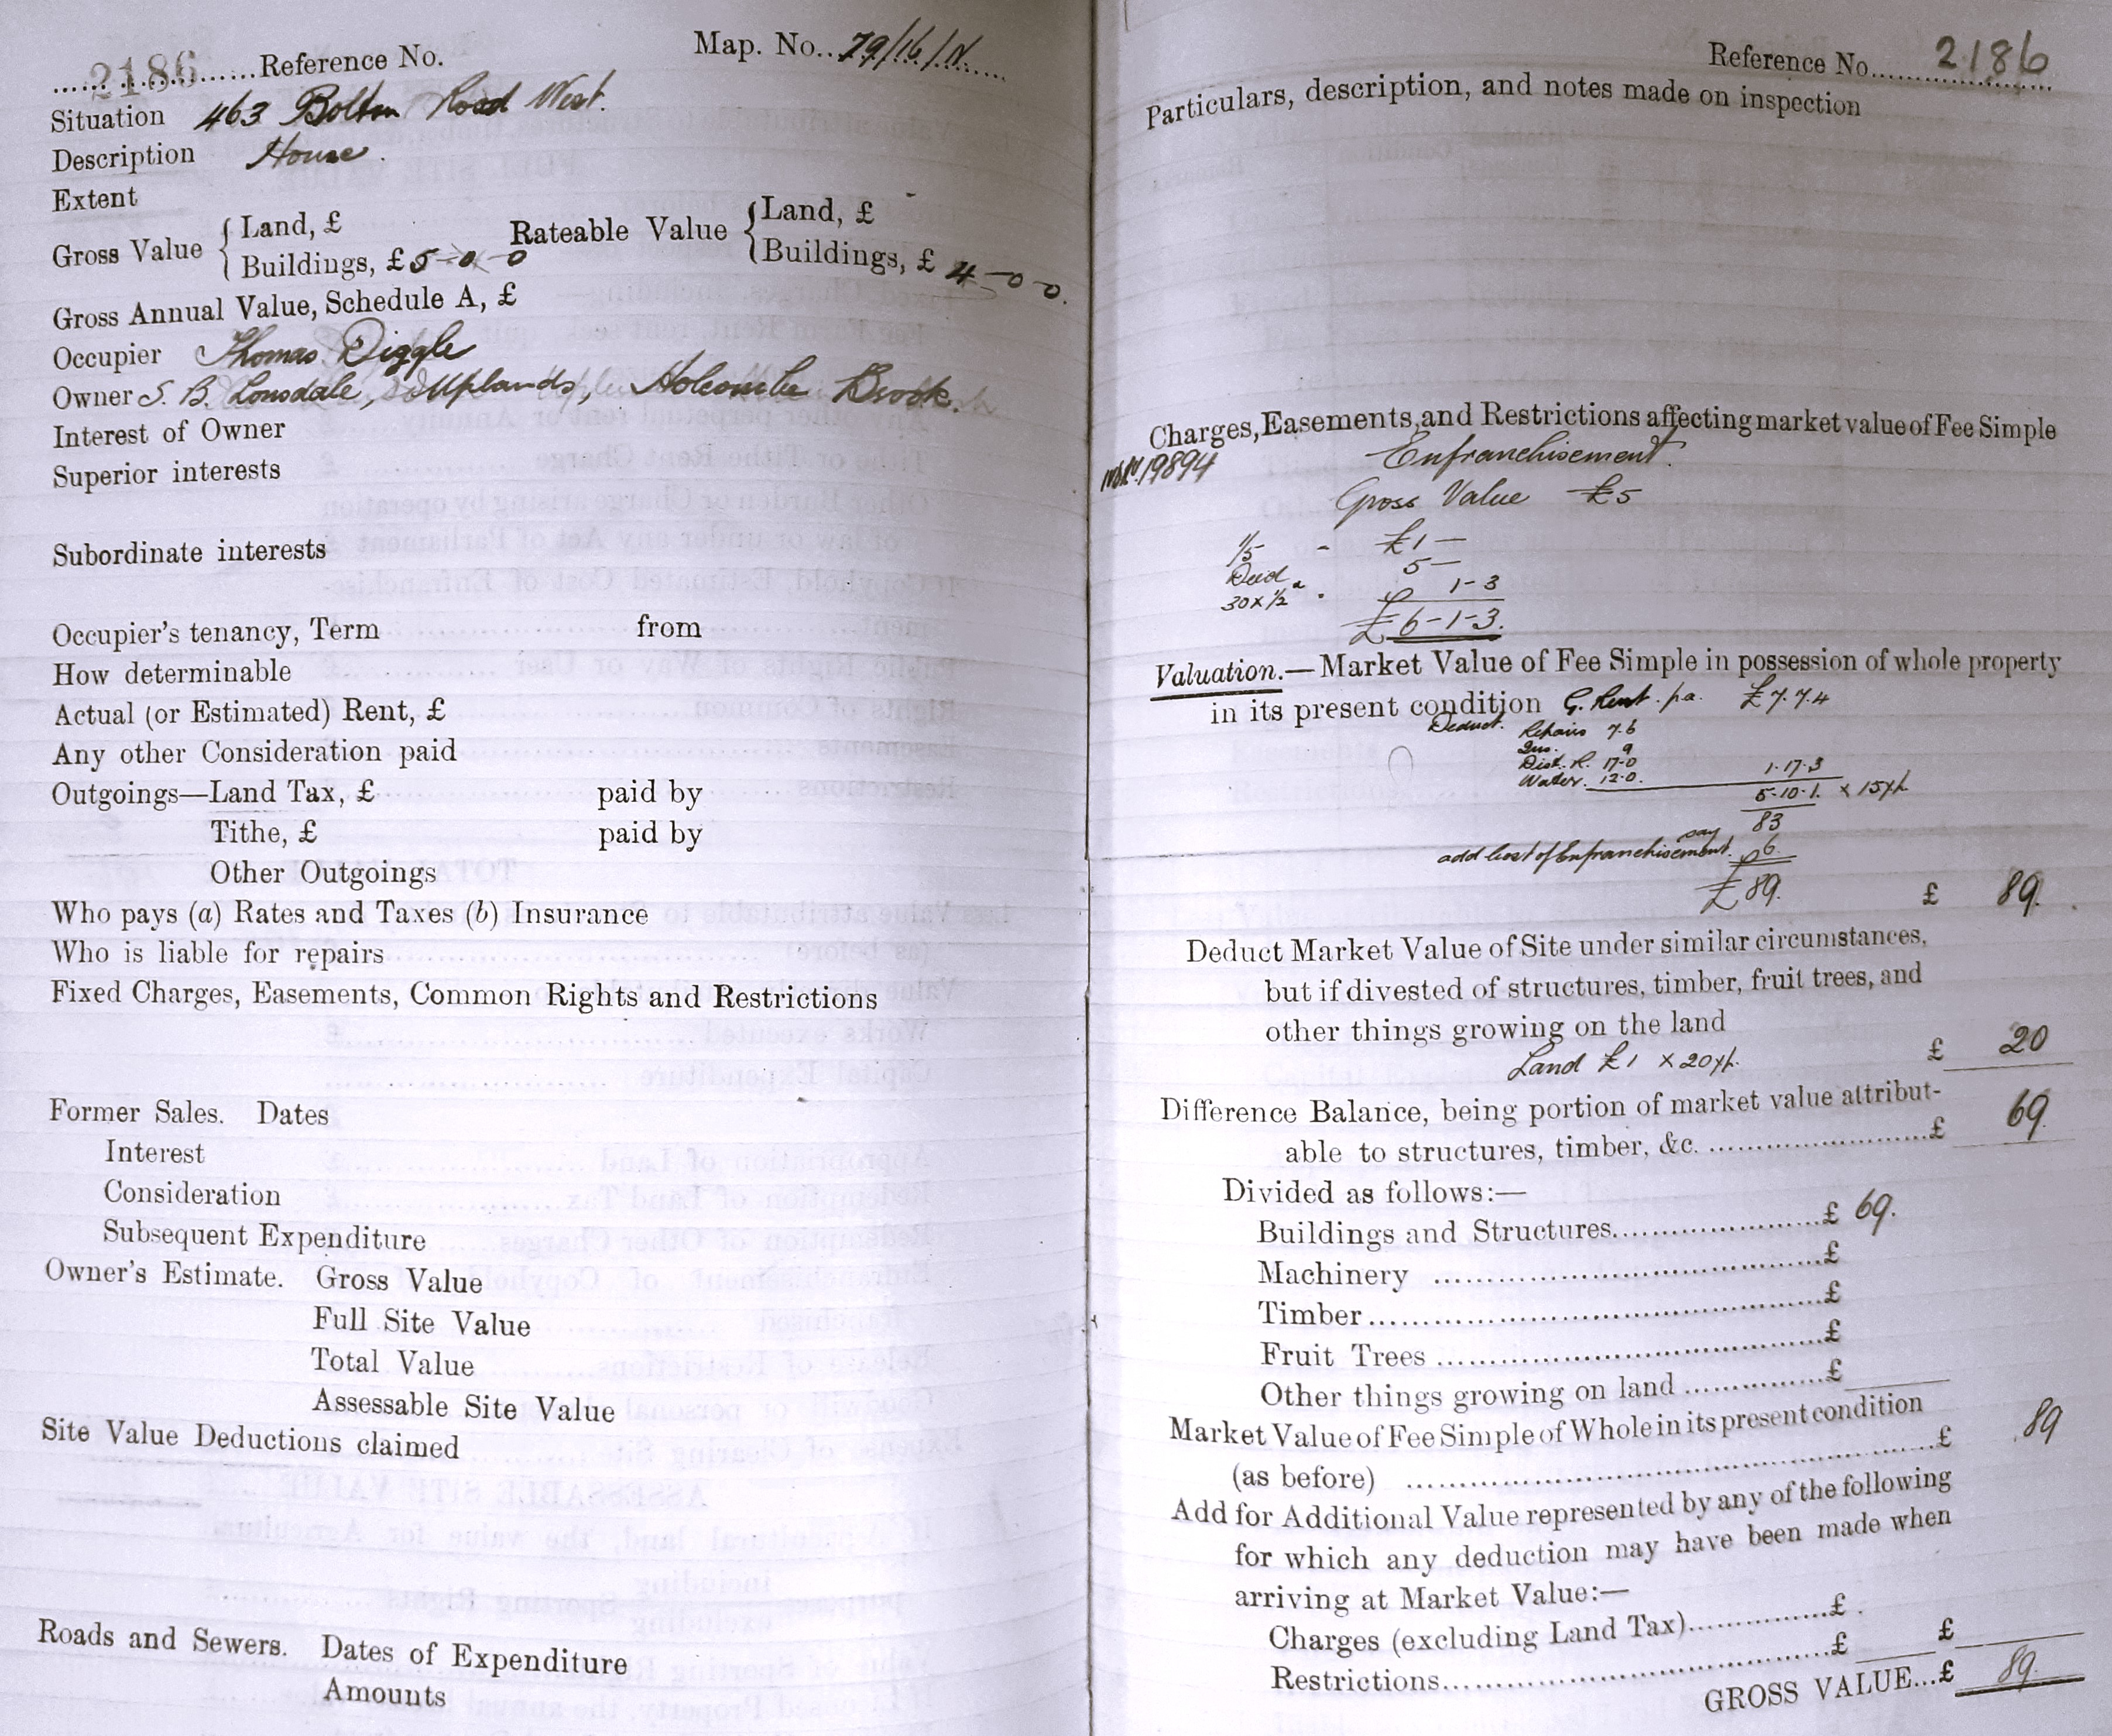 2186 Reference No. Map. No. 79/16/N.
Situation 463 Bolton Road West.
Description House.
Extent
Gross Value { Land, £ Rateable Value { Land, £
Buildings, £ 5-0-0 Buildings, £ 4-0-0.
Gross Annual Value, Schedule A, £
Occupier Thomas Diggle
Owner S. B. Lonsdale, Uplands, Holcombe Brook.
Interest of Owner
Superior interests
Subordinate interests
Occupier's tenancy, Term from
How determinable
Actual (or Estimated) Rent, £
Any other Consideration paid
Outgoings—Land Tax, £ paid by
Tithe, £ paid by
Other Outgoings
Who pays (a) Rates and Taxes (b) Insurance
Who is liable for repairs
Fixed Charges, Easements, Common Rights and Restrictions
Former Sales. Dates
Interest
Consideration
Subsequent Expenditure
Owner's Estimate. Gross Value
Full Site Value
Total Value
Assessable Site Value
Site Value Deductions claimed
Roads and Sewers. Dates of Expenditure
Amounts
Reference No. 2186
Particulars, description, and notes made on inspection
Charges, Easements, and Restrictions affecting market value of Fee Simple
19894 Enfranchisement.
Gross Value £5
1/5 - £1 —
Deed 5 —
30 x ½d. 1-3
£6-1-3.
Valuation.—Market Value of Fee Simple in possession of whole property
in its present condition G. Rent. p.a. £7.7.4
Deduct. Repairs 7.6
Ins. 9
Dist. R. 17-0 1.17.3
Water. 12.0. 5.10.1. x 15yp.
83
say
add Cost of Enfranchisement. 6.
£89. £ 89.
Deduct Market Value of Site under similar circumstances,
but if divested of structures, timber, fruit trees, and
other things growing on the land
Land £1 x 20yp. £ 20
Difference Balance, being portion of market value attribut-
able to structures, timber, &c. £ 69.
Divided as follows:—
Buildings and Structures £ 69.
Machinery £
Timber £
Fruit Trees £
Other things growing on land £
Market Value of Fee Simple of Whole in its present condition
(as before) £ 89
Add for Additional Value represented by any of the following
for which any deduction may have been made when
arriving at Market Value:—
Charges (excluding Land Tax) £
Restrictions £ £
GROSS VALUE...£ 89.